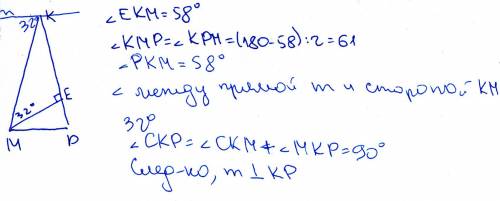 m
K
32°
32°
E
M
P
∠EKM=58°
∠KMP=∠KPM=(180-58):2=61
∠PKM=58°
∠ между прямой m и стороной KM
32°
∠CKP=∠CKM+∠MKP=90°
След-но, m⊥KP